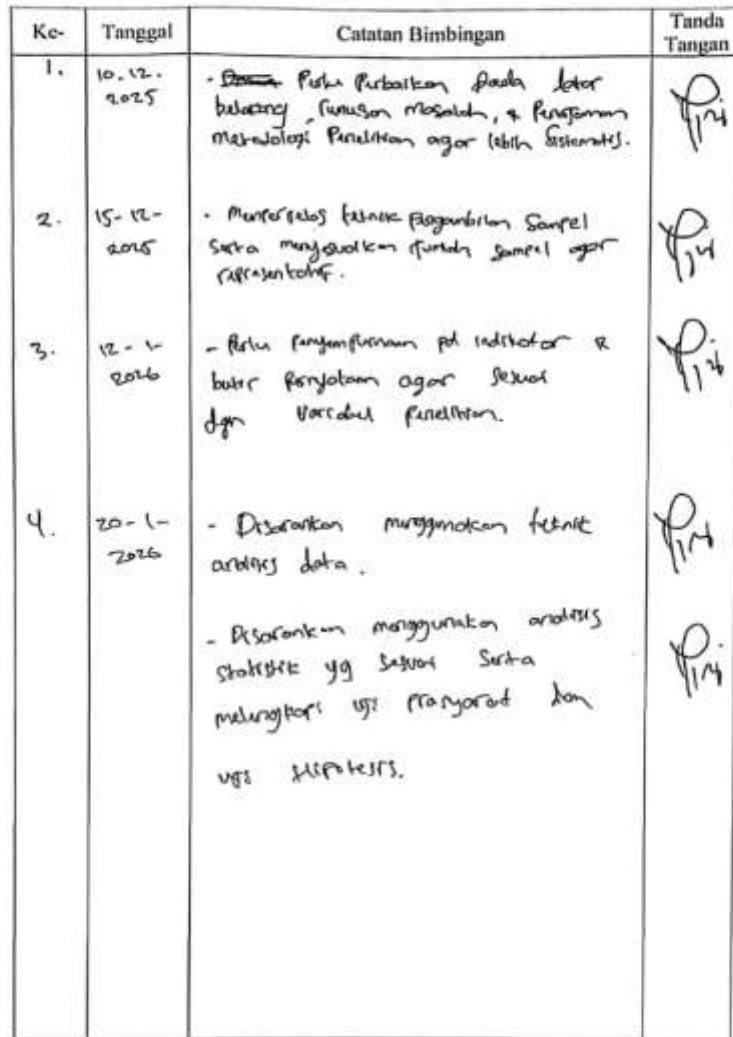 Ke- Tanggal Catatan Bimbingan Tanda Tangan
1. 10.12.2025
- Perlu Perbaikan pada latar
belakang, rumusan masalah, & Penajaman
metodologi Penelitian agar lebih Sistematis.
2. 15-12-2025
- Memperjelas teknik pengambilan Sampel
Serta menyesuaikan jumlah sampel agar
representatif.
3. 12-1-2026
- Perlu Penyempurnaan pd indikator &
butir Pernyataan agar Sesuai
dgn Variabel Penelitian.
4. 20-1-2026
- Disarankan menggunakan teknik
analisis data.
- Disarankan menggunakan analisis
Statistik yg Sesuai Serta
melengkapi uji Prasyarat dan
uji Hipotesis.